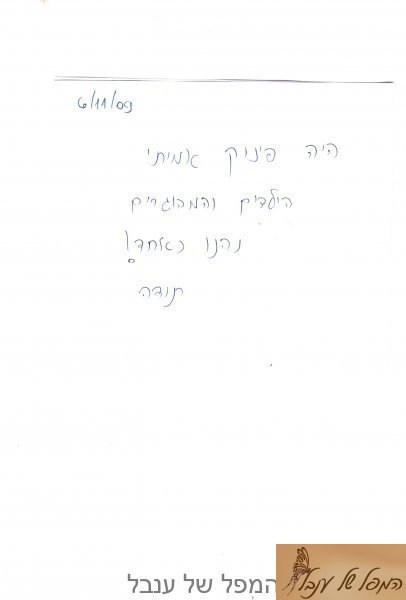 6/11/09
היה פינוק אמיתי
הילדים והמבוגרים
נהנו כאחד!
תודה
המפל של ענבל
המפל של ענבל